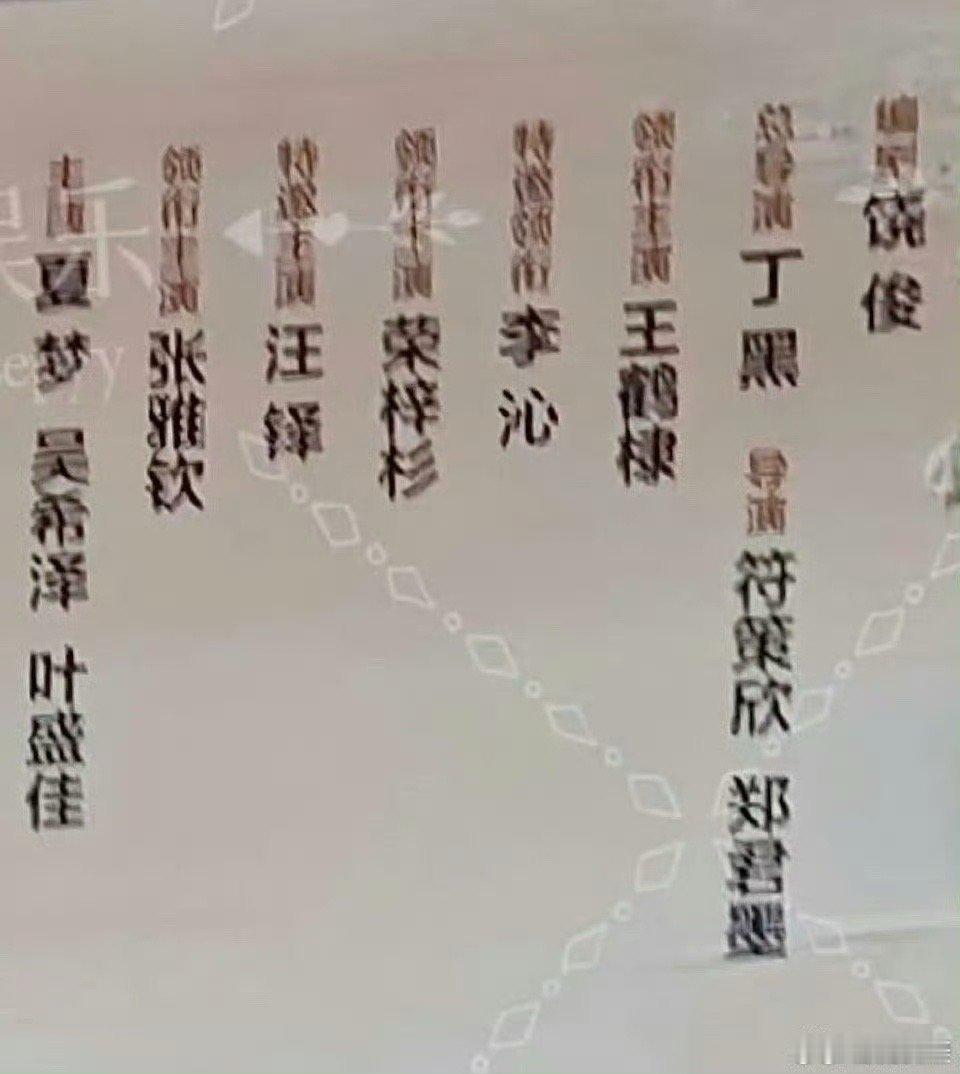 编剧 饶俊
总导演 丁黑 导演 欣
领衔主演 王鹤棣
李沁
领衔主演 荣梓杉
特邀主演 汪铎
领衔主演 张雅钦
主演 夏梦 吴希泽 叶盛佳